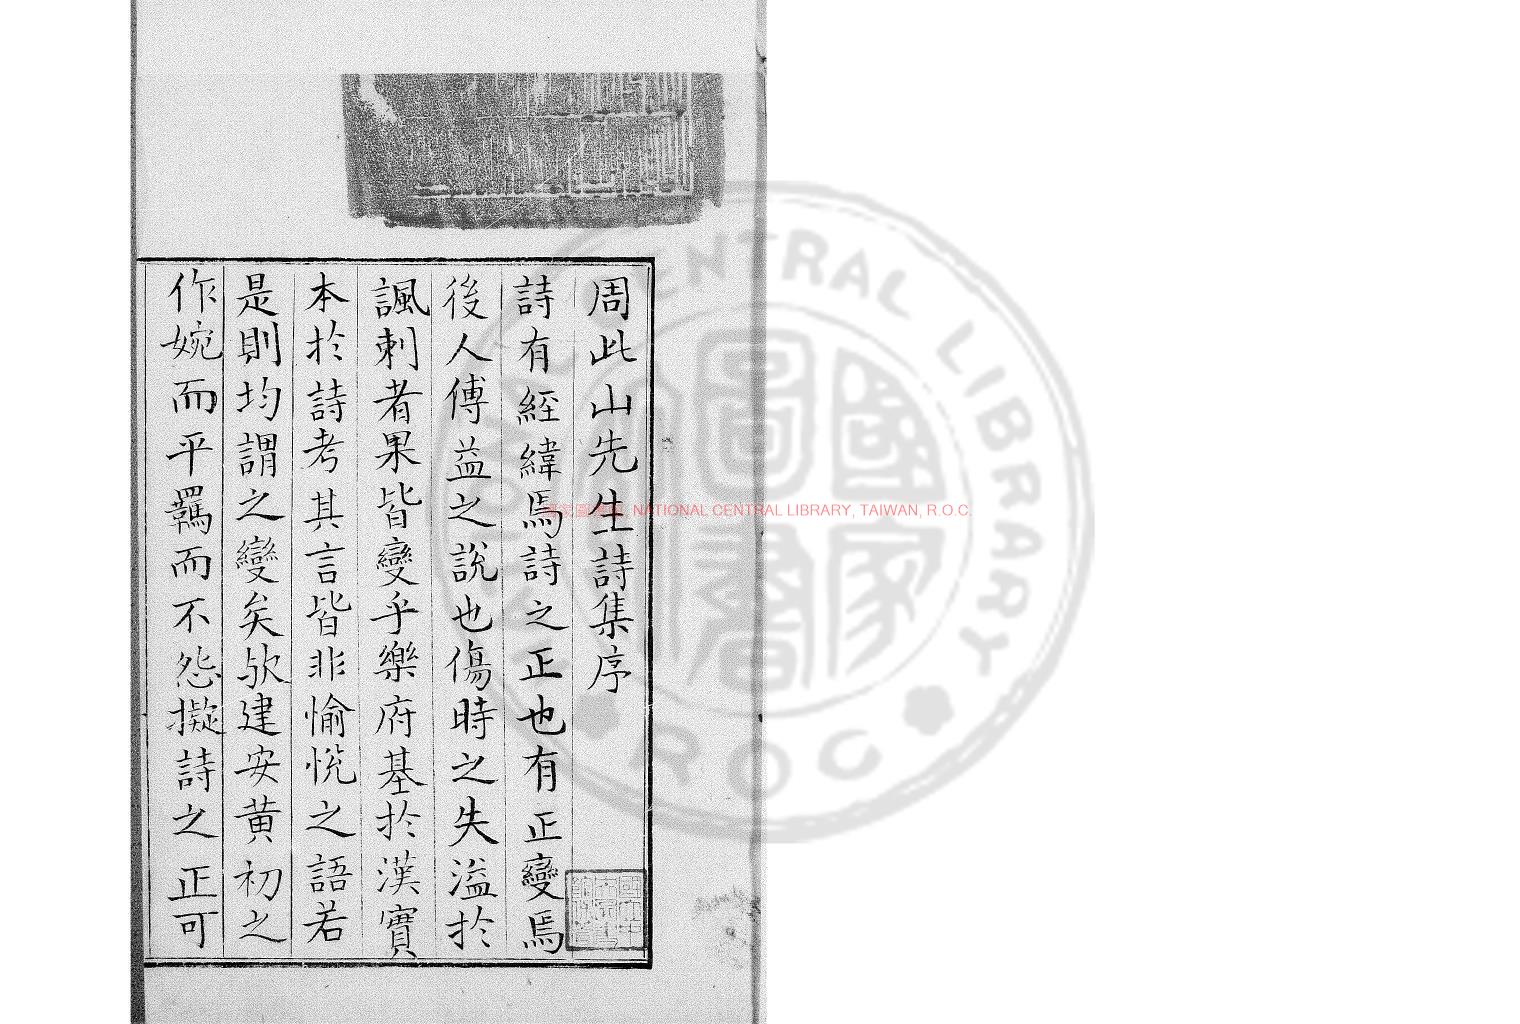 周此山先生詩集序
詩有經緯焉詩之正也有正變焉
後人傅益之說也傷時之失溢於
諷刺者果皆變乎樂府基於漢實
本於詩考其言皆非愉悅之語若
是則均謂之變矣歟建安黃初之
作婉而平羈而不怨擬詩之正可
NATIONAL CENTRAL LIBRARY, TAIWAN, R.O.C.
NATIONAL CENTRAL LIBRARY
ROC
國家圖書館